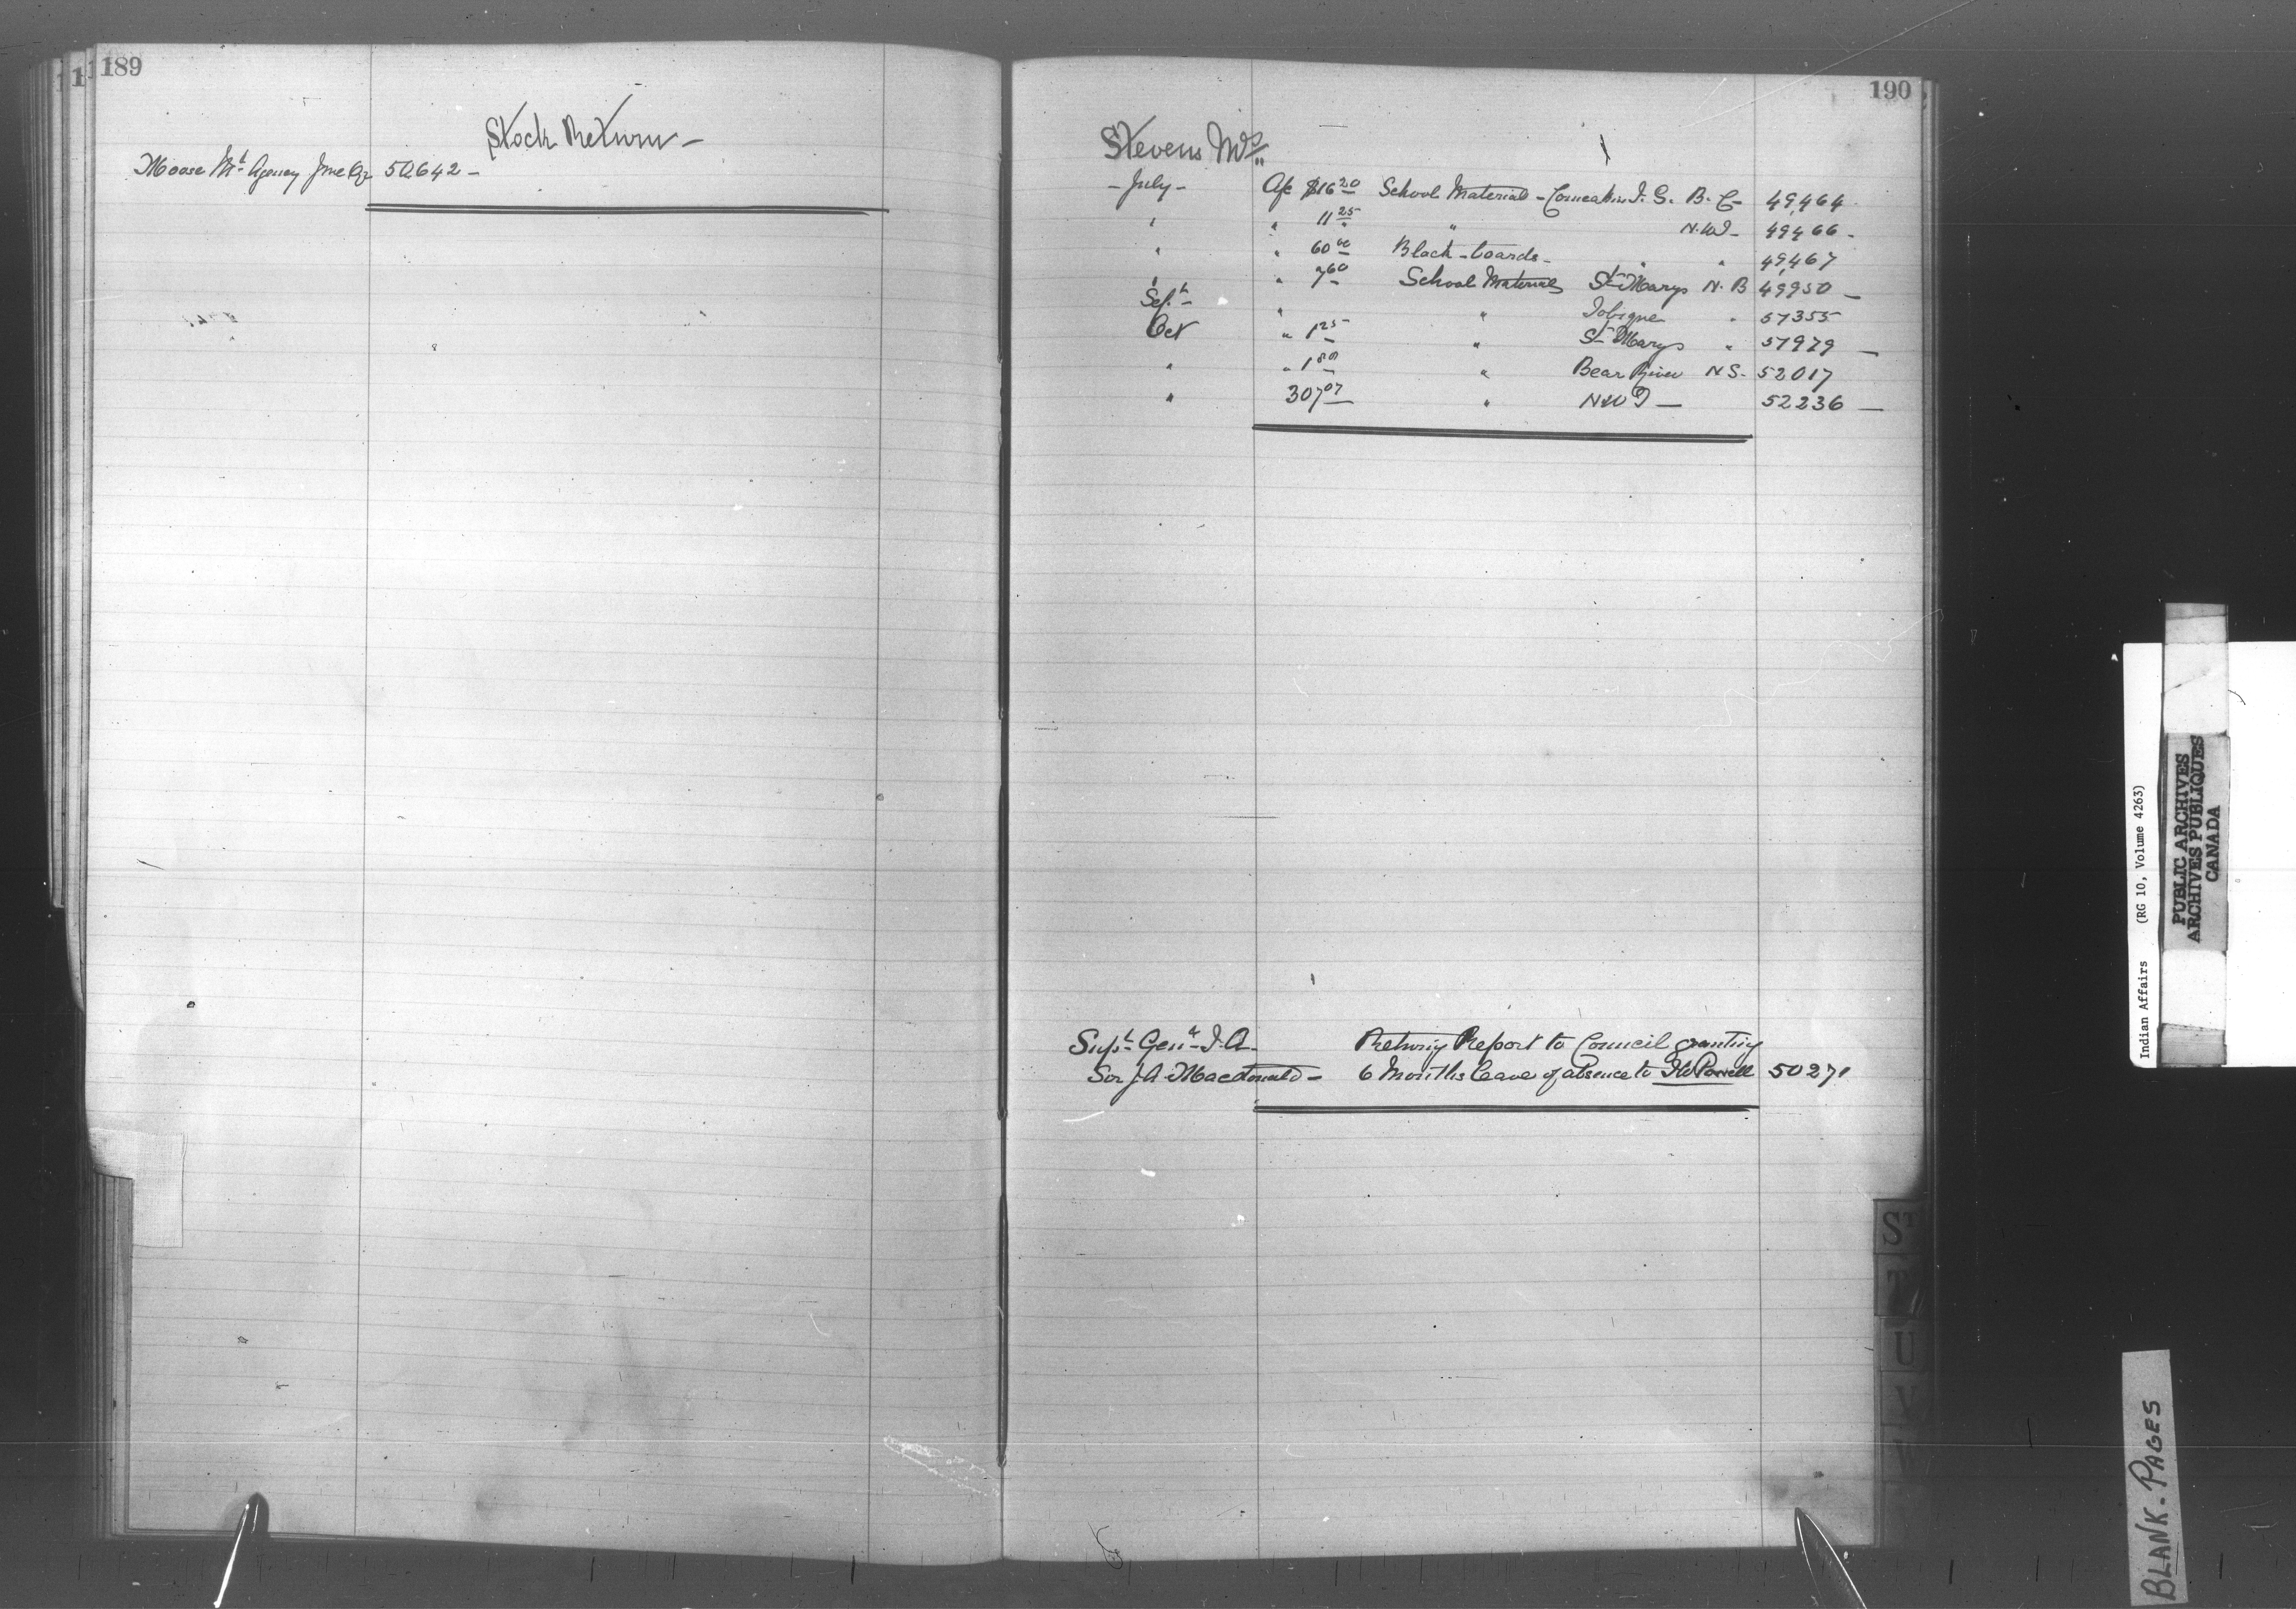 189
Stock Return –
Moose Mt Agency June Qr 50,642 –
190
Stevens Mrs
– July – A/c $16 20 School Material – Comeakin I. S. B. C – 49,464
" " 11 25 " N.W.T – 49,466 –
" " 60 00 Black-boards – " " 49,467
" " 7 60 School Material St Marys N. B 49,950 –
Sept – " " Tobique " 51355
Oct " 1 25 " St Marys " 51979 –
" " 1 80 " Bear River N S. 52017
" 307 07 " N W T – 52236 –
Supt Genl I. A – Returng Report to Council granting
Sir J A Macdonald – 6 Months leave of absence to I W Powell 50271
ST
T
U
V
W
Indian Affairs (RG 10, Volume 4263)
PUBLIC ARCHIVES
ARCHIVES PUBLIQUES
CANADA
BLANK-PAGES